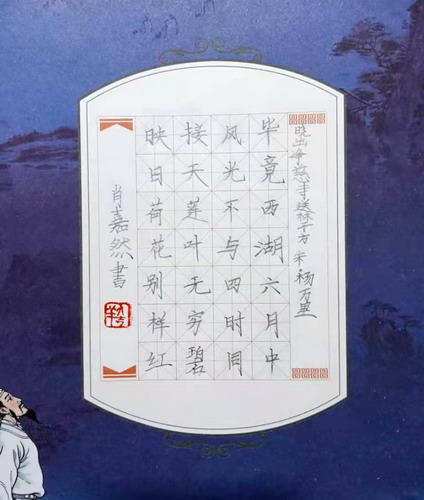 晓出净慈寺送林子方 宋 杨万里
毕竟西湖六月中
风光不与四时同
接天莲叶无穷碧
映日荷花别样红
肖嘉然書